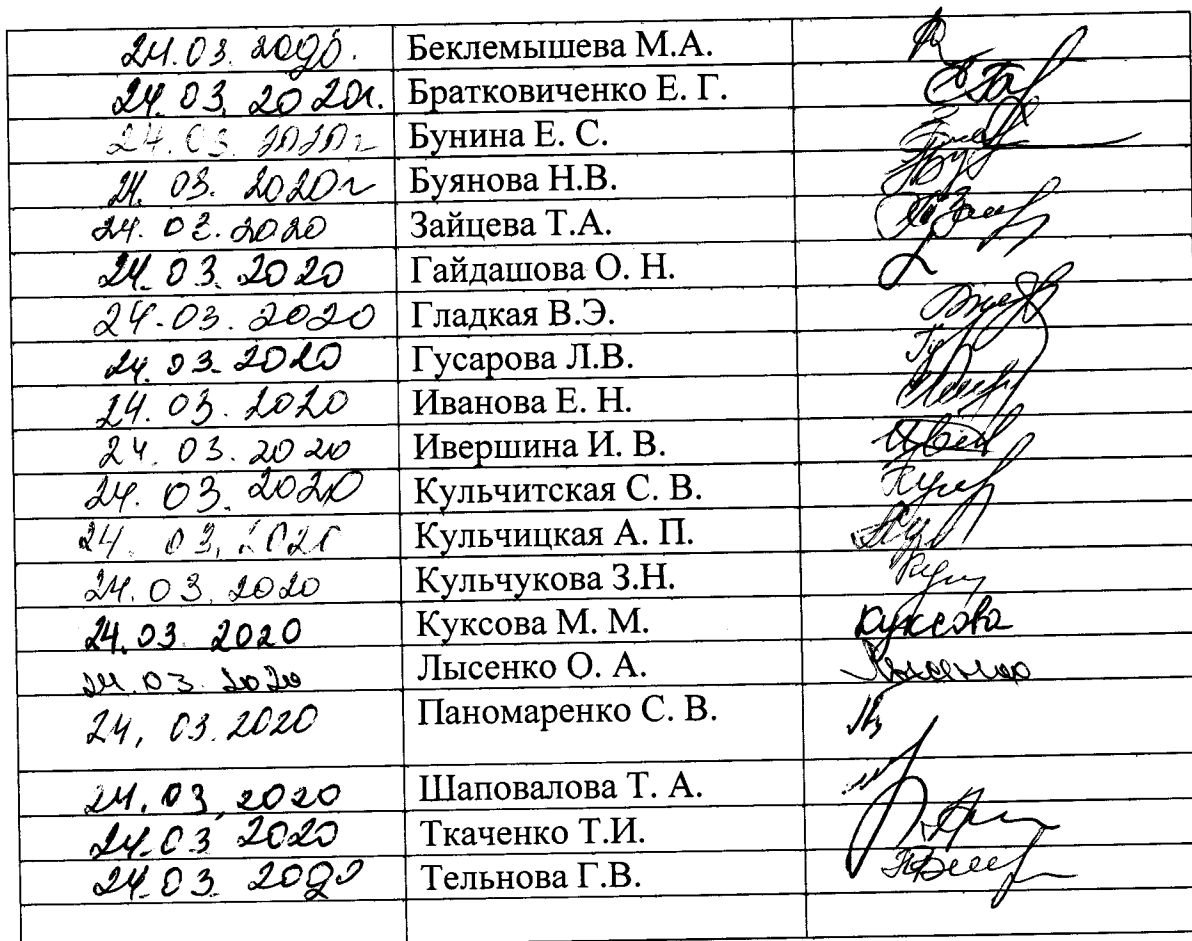 24.03.2020. Беклемышева М.А.
24.03.2020г. Братковиченко Е. Г.
24.03.2020г Бунина Е. С.
24.03.2020г Буянова Н.В.
24.03.2020 Зайцева Т.А.
24.03.2020 Гайдашова О. Н.
24.03.2020 Гладкая В.Э.
24.03.2020 Гусарова Л.В.
24.03.2020 Иванова Е. Н.
24.03.2020 Ивершина И. В.
24.03.2020 Кульчитская С. В.
24.03.2020 Кульчицкая А. П.
24.03.2020 Кульчукова З.Н.
24.03.2020 Куксова М. М. Куксова
24.03.2020 Лысенко О. А. Лысенко
24.03.2020 Паномаренко С. В.
24.03.2020 Шаповалова Т. А.
24.03.2020 Ткаченко Т.И.
24.03.2020 Тельнова Г.В.